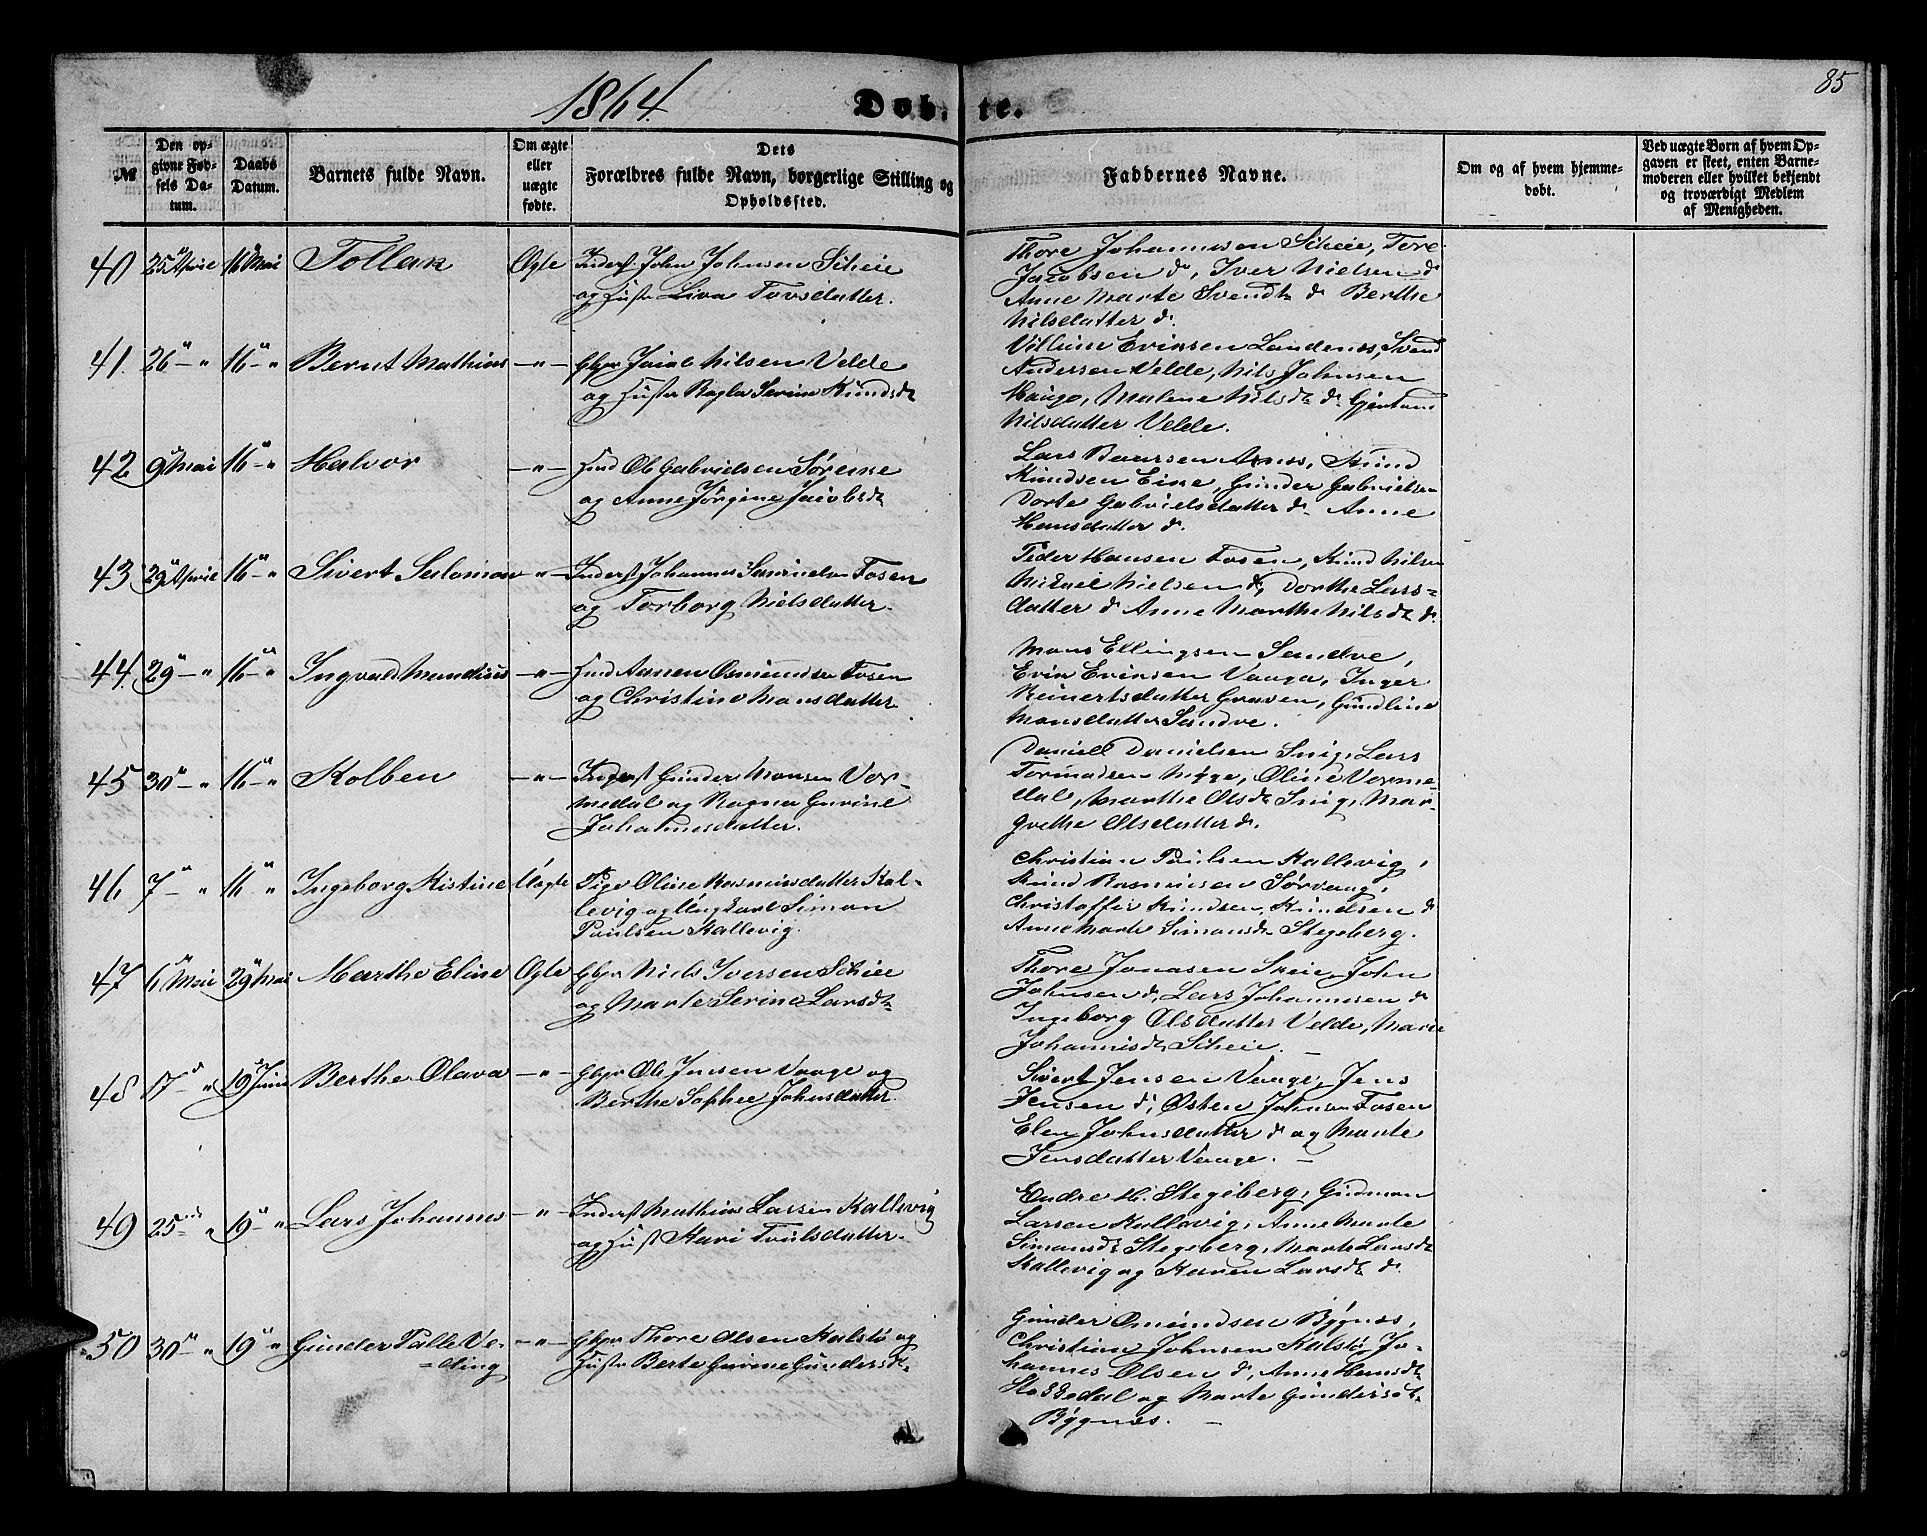 1864.
Døbte.
85
№
Den op-
givne Fød-
sels Da-
tum.
Daabs
Datum.
Barnets fulde Navn.
Om ægte
eller
uægte
fødte.
Dets
Forældres fulde Navn, borgerlige Stilling og
Opholdssted.
Faddernes Navne.
Om og af hvem hjemme-
døbt.
Ved uægte Børn af hvem Op-
gaven er skeet, enten Barne-
moderen eller hvilket bekjendt
og troværdigt Medlem
af Menigheden.
40 25 April 16 Mai Tollak Ægte Inderst John Johnsen Scheie
og Hustr Liva Tovsdatter.
Thore Johannesen Scheie, Tore
Jacobsen do, Iver Nielsen do
Anne Marte Svendtr do Berthe
Nilsdatter do.
41. 26 - " 16 - " Bernt Mathias - " - Gbr Jacob Nilsen Velde
og Hustr Ragla Serine Knudsdtr
Villum Eriksen Landenæs, Svend
Andersen Velde, Nils Johnsen
Hauge, Malene Nilsdtr do
Nilsdatter Velde.
42 9 Mai 16 - " Halvor - " - Hmd Ole Gabrielsen Sørenæ
og Anne Jørgine Jacobsdtr
Lars Baarsen Knud
Knudsen Eine, Gunder Gabrielsen
Dorte Gabrielsdatter do Anne
Hansdatter do.
43 29 April 16 - " Sivert Salomon - " - Inderst Johannes Samuelsen Fosen
og Torborg Nielsdatter.
Peder Hansen Fosen, Knud Nilsen
Mikael Nielsen do, Dorthe Lars=
datter do Anne Marthe Nilsdtr do.
44. 29 - " 16 - " Ingvald Mandius - " - Hmd Aanen Osmundsen Fosen
og Christine Mansdatter
Mons Ellingsen Sandve,
Erik Eriksen Vaaga, Inger
Reinertsdatter Graven, Gundline
Monsdatter Sandve.
45 30 - " 16 - " Kolben - " - Inderst Gunder Monsen Vor-
medal og Ragna Gurine
Johannesdatter.
Daniel Danielsen Snig, Lars
Tormodsen Nygge, Oline Vorme-
dal, Marthe Olsdtr Snig, Mar-
grethe Olsdatter do.
46 7 - " 16 " Ingeborg Kistine Uægte Pige Oline Rasmusdatter Kal-
levig og Ungkarl Simon
Poulsen Kallevig.
Christian Poulsen Kallevig,
Knud Rasmusen Sørvaag,
Christoffer Knudsen, Knudsen do
Anne Marte Simonsdtr Stegeberg.
47 6 Mai 29 Mai Marthe Eline Ægte Gbr Niels Iversen Schiee
og Marte Serine Larsdtr
Thore Jonasen Skeie, John
Johnsen do, Lars Johannesen do
Ingeborg Olsdatter Velde, Marie
Johannisdtr Scheie. -
48 17 - " 19 Juni Berthe Olava - " - Gbr Ole Jensen Vaage og
Berthe Sophie Johnsdatter.
Sivert Jensen Vaage, Jens
Jensen do, Østen Johnsen Fosen
Elen Johnsdatter do og Marte
Jensdatter Vaage. -
49 25 - " 19 - " Lars Johannes - " - Inderst Mathias Larsen Kallevig
og Hust Kari Poulsdatter.
Endre H. Stegeberg, Gudman
Larsen Kallevig, Anne Marte
Simonsdtr Stegeberg, Marte Larsdtr
Kallevig og Karen Larsdtr do.
50 30 - " 19 - " Gunder Palle Ve-
=ding - " - Gbr Thore Olsen Kalstø og
Hustr Berte Gurine Gundersdtr.
Gunder Omundsen Bygnæs,
Christian Johnsen Kalstø, Jo-
hannes Olsen do, Anne Hansdtr
Stokkedal og Marte Gundersdtr
Bygnæs. -